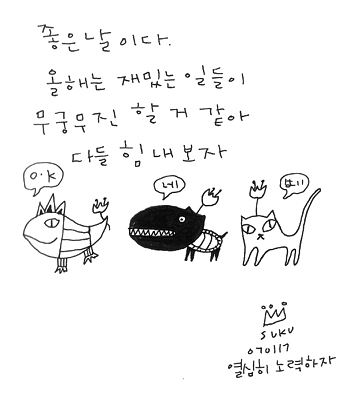 좋은 날이다.
올해는 재밌는 일들이
무궁무진 할 거 같아
다들 힘 내 보자
O.K
네!
SUKU
070117
열심히 노력하자